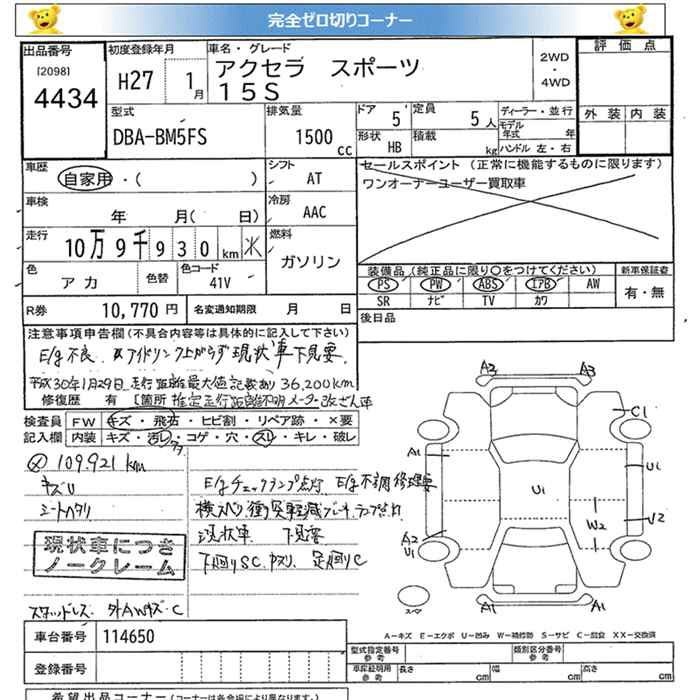 完全ゼロ切りコーナー
出品番号
[2098]
4434
初度登録年月
H27 1月
車名・グレード
アクセラ スポーツ
15S
2WD
・
4WD
評価点
外装 内装
型式
DBA-BM5FS
排気量
1500 cc
ドア 5
定員 5人
形状 HB
積載 kg
ディーラー・並行
モデル年式 年
ハンドル 左・右
車歴
自家用・( )
シフト
AT
セールスポイント (正常に機能するものに限ります)
ワンオーナーユーザー買取車
車検
年 月( 日)
冷房
AAC
走行
10万9千930km
燃料
ガソリン
色
アカ
色替
色コード
41V
装備品(純正品に限り○をつけてください)
PS PW ABS エアB AW
SR ナビ TV カワ
新車保証書
有・無
R券 10,770円
名変通知期限 月 日
後日品
注意事項申告欄(不具合内容等は具体的に記入して下さい)
E/g不良 アイドリング上がらず 現状車下見要
平成30年1月29日 走行距離最大値記載あり 36,200km
修復歴 有 [箇所 推定走行距離不明 メーター改ざん車
検査員記入欄
FW キズ・飛石・ヒビ割・リペア跡・×要
内装 キズ・汚レ・コゲ・穴・スレ・キレ・破レ
109.921km
キズU
シートヘタリ
E/gチェックランプ点灯 E/g不調修理要
横スベリ 衝突軽減ブレーキランプ点灯
現状車 下見要
下廻りSC.
足廻りC
現状車につき
ノークレーム
スタッドレス・外AWキズ・C
A3 A3
C1
A1
U1
U1
W2
U2
A2
U1
スペア
A1 A1
A－キズ E－エクボ U－凹み W－補修跡 S－サビ C－腐食 XX－交換済
車台番号 114650
登録番号
型式指定番号 参考
類別区分番号 参考
車庫証明用 参考
長さ cm
幅 cm
高さ cm
希望出品コーナー(コーナーは各会場により異なります)